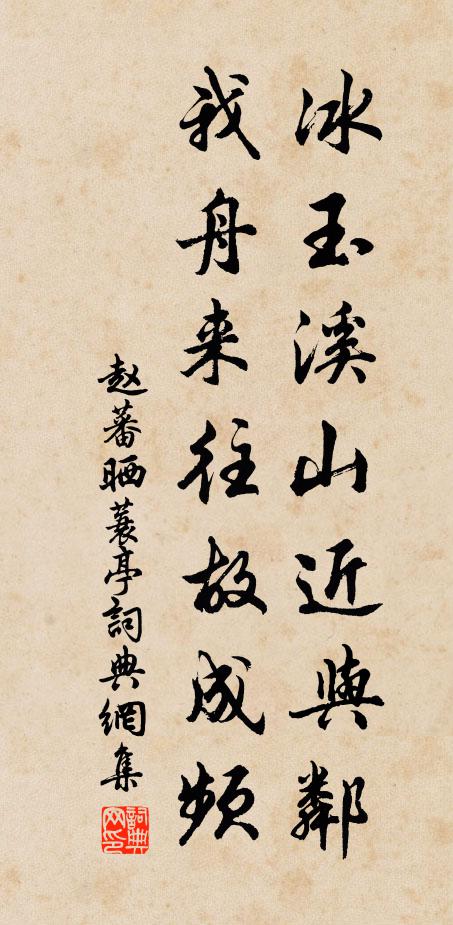 冰玉溪山近與鄰
我舟来往故成頻
赵蕃晒蓑亭詞典網集
詞典網印